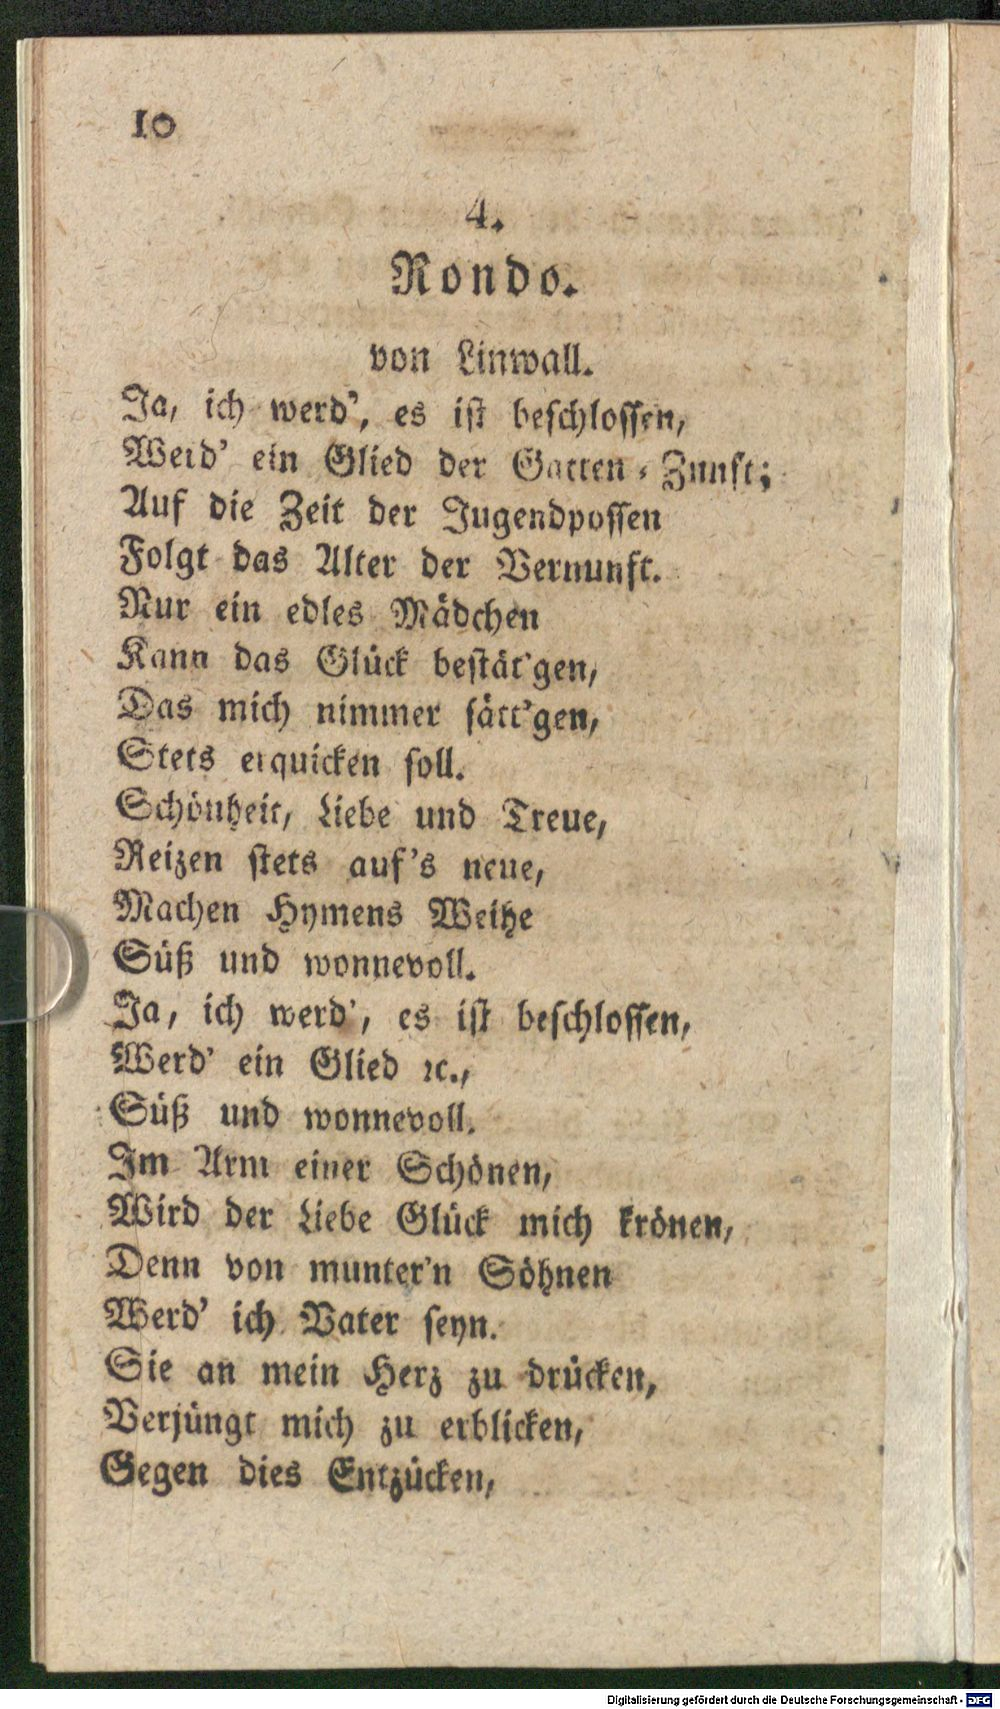 10
4.
Rondo.
von Linwall.
Ja, ich werd', es ist beschlossen,
Werd' ein Glied der Gatten-Zunft;
Auf die Zeit der Jugendpossen
Folgt das Alter der Vernunft.
Nur ein edles Mädchen
Kann das Glück bestät'gen,
Das mich nimmer sätt'gen,
Stets erquicken soll.
Schönheit, Liebe und Treue,
Reizen stets auf's neue,
Machen Hymens Weihe
Süß und wonnevoll.
Ja, ich werd', es ist beschlossen,
Werd' ein Glied ꝛc.,
Süß und wonnevoll.
Im Arm einer Schönen,
Wird der Liebe Glück mich krönen,
Denn von munter'n Söhnen
Werd' ich Vater seyn.
Sie an mein Herz zu drücken,
Verjüngt mich zu erblicken,
Gegen dies Entzücken,
Digitalisierung gefördert durch die Deutsche Forschungsgemeinschaft - DFG